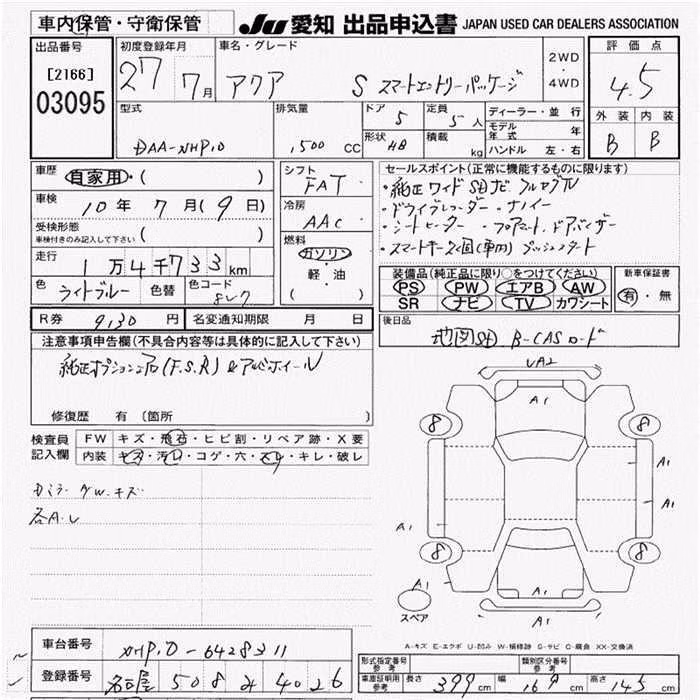 車内保管・守衛保管 JU 愛知 出品申込書 JAPAN USED CAR DEALERS ASSOCIATION
出品番号 初度登録年月 車名・グレード 2WD ・ 4WD 評価点
[2166] 27 7月 アクア S スマートエントリーパッケージ 4.5
03095
型式 排気量 ドア 5 定員 5人 ディーラー・並行 外装 内装
DAA-NHP10 1,500 CC 形状 HB 積載 kg モデル年式 年 B B
ハンドル 左・右
車歴 自家用・( ) シフト FAT セールスポイント(正常に機能するものに限ります)
車検 10年 7月(9日) 冷房 AAC ・純正ワイドSDナビ フルセグ
受検形態 車検付きのみ記入して下さい ( ) 燃料 ガソリン 軽・油 ( ) ・ドライブレコーダー ・ナノイー
・シートヒーター
・スマートキー2個(車内) プッシュスタート
走行 1万4千733km 装備品(純正品に限り○をつけてください) 新車保証書
色 ライトブルー 色替 色コード PS PW エアB AW 有・無
SR ナビ TV カワシート
R券 9,130円 名変通知期限 月 日 後日品
地図SD B-CASカード
注意事項申告欄(不具合内容等は具体的に記入して下さい)
純正オプションエアロ(F.S.R) & アルミホイール
修復歴 有 (箇所 )
検査員記入欄 FW キズ・飛石・ヒビ割・リペア跡・X要
内装 キズ・汚レ・コゲ・穴・スレ・キレ・破レ
UA2
A1
8 8
A1 A1
A1 A1
8 8
A1 A1
A1
スペア
各A.U
A-キズ E-エクボ U-凹み W-補修跡 S-サビ C-腐食 XX-交換済
車台番号 NHP10-6428311 形式指定番号 参考 類別区分番号 参考
登録番号 名古屋 508 そ 4026 車庫証明用 参考 長さ 399cm 幅 169cm 高さ 145cm